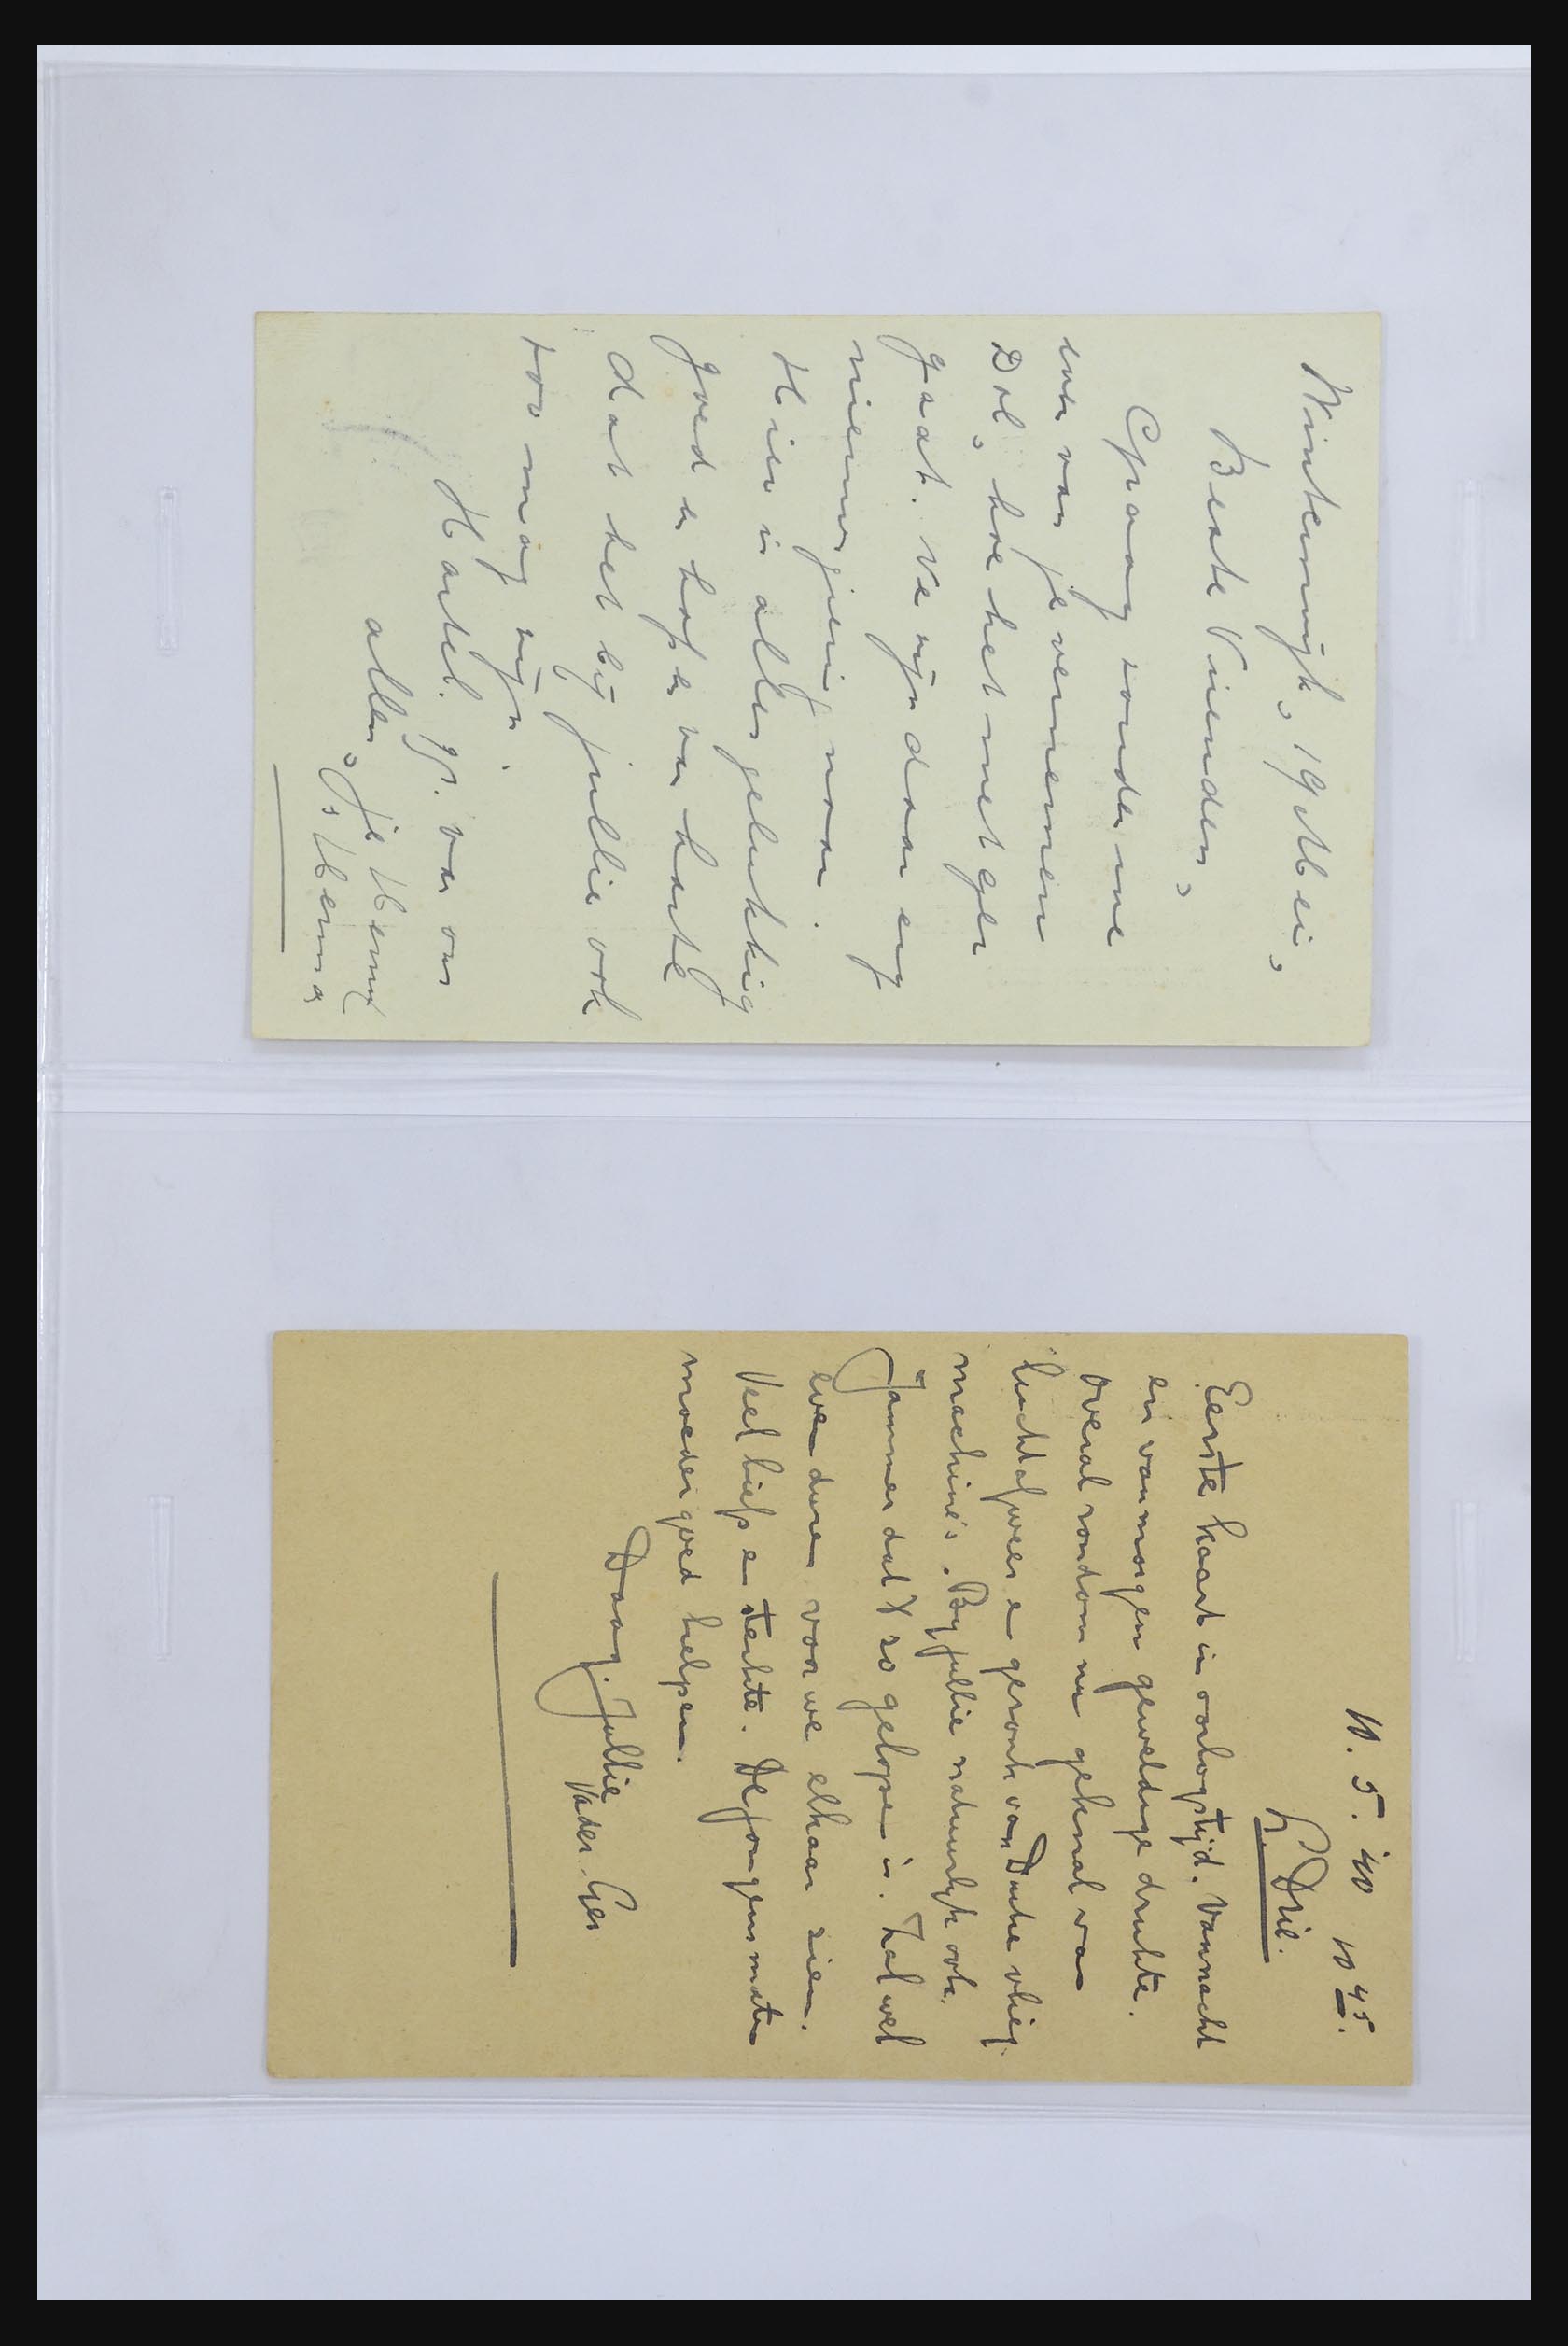 Winterswijk, 19 Mei,
Beste Vrienden,
Graag zouden we
even van je vernemen
Dol, hoe het met Ger
gaat. We zijn daar erg
nieuwsgierig naar.
Hier is alles gelukkig
goed en hopen van harte
dat het bij jullie ook
zoo mag zijn.
Hartel. gr. van ons
allen,
10. 5. '40 10 45.
Driel.
Eerste kaart in oorlogstijd. Vannacht
en vanmorgen geweldige drukte.
Overal rondom nu geknal van
luchtafweer en geronk van Duitse vlieg
machine's. By jullie natuurlyk ook.
Jammer dat 't zo gelopen is. Zal wel
even duren voor we elkaar zien.
Veel liefs en sterkte. De jongens moeten
moeder goed helpen.
Daag. Jullie
Vader. Ger